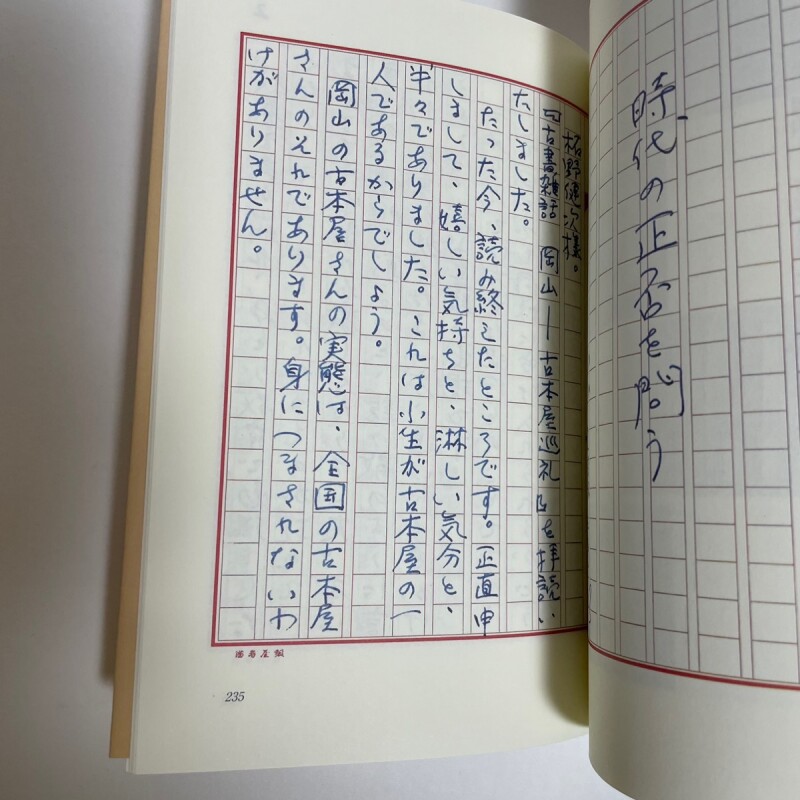 時代の正否を問う
柘野健次様。
『古書雑話 岡山―古本屋巡礼』を拝読い
たしました。
たった今、読み終えたところです。正直申
しまして、嬉しい気持ちと、淋しい気分と、
半々でありました。これは小生が古本屋の一
人であるからでしょう。
岡山の古本屋さんの実態は、全国の古本屋
さんのそれであります。身につまされないわ
けがありません。
235